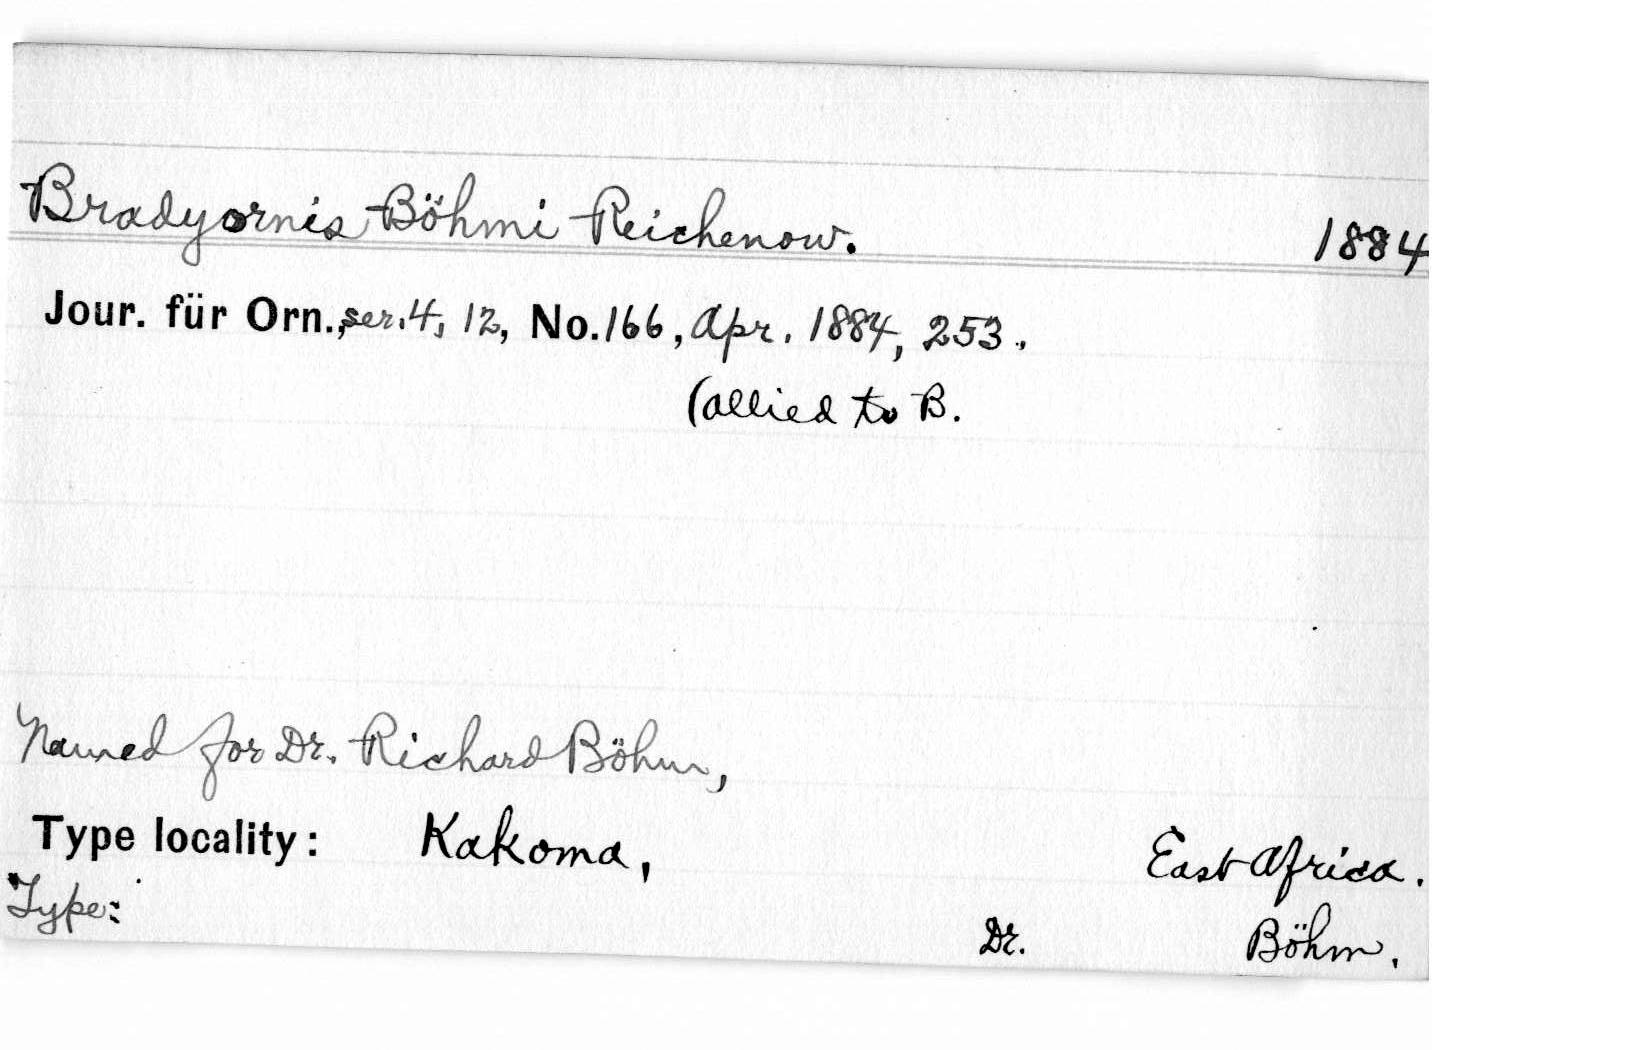 Bradyornis Böhmi Reichenow. 1884
Jour. für Orn., ser. 4, 12, No. 166, Apr. 1884, 253.
(allied to B.
Named for Dr. Richard Böhm,
Type locality: Kakoma, East Africa.
Type: Dr. Böhm.